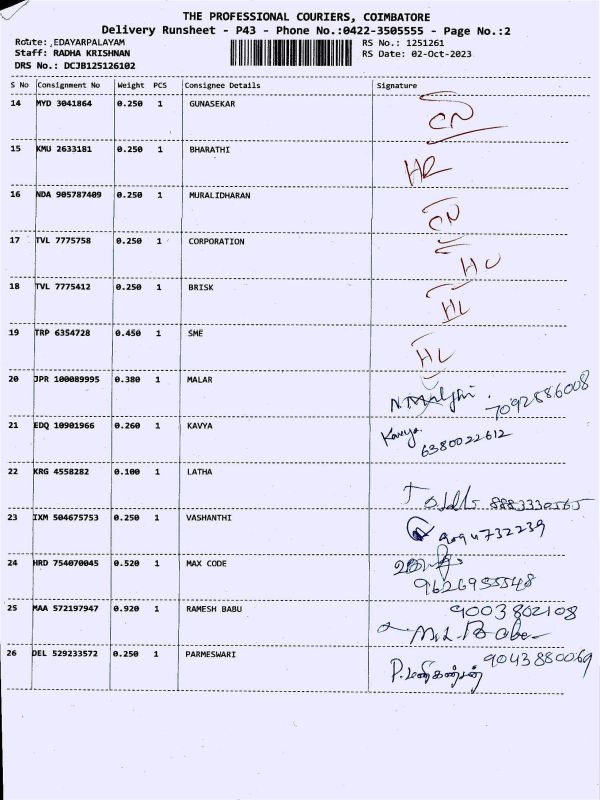 THE PROFESSIONAL COURIERS, COIMBATORE
Delivery Runsheet - P43 - Phone No.:0422-3505555 - Page No.:2
Route: ,EDAYARPALAYAM RS No.: 1251261
Staff: RADHA KRISHNAN RS Date: 02-Oct-2023
DRS No.: DCJB125126102
S No Consignment No Weight PCS Consignee Details Signature
14 MYD 3041864 0.250 1 GUNASEKAR
CN
15 KMU 2633181 0.250 1 BHARATHI
HR
16 NDA 905787409 0.250 1 MURALIDHARAN
CN
17 TVL 7775758 0.250 1 CORPORATION
HU
18 TVL 7775412 0.250 1 BRISK
HL
19 TRP 6354728 0.450 1 SME
HL
20 JPR 100089995 0.380 1 MALAR
7092586008
21 EDQ 10901966 0.260 1 KAVYA
Kavya
6380022612
22 KRG 4558282 0.100 1 LATHA
8883330565
23 IXM 504675753 0.250 1 VASHANTHI
9094732239
24 HRD 754070045 0.520 1 MAX CODE
9626955548
25 MAA 572197947 0.920 1 RAMESH BABU
9003802108
26 DEL 529233572 0.250 1 PARMESWARI
9043880069
P. மணிகண்டன்